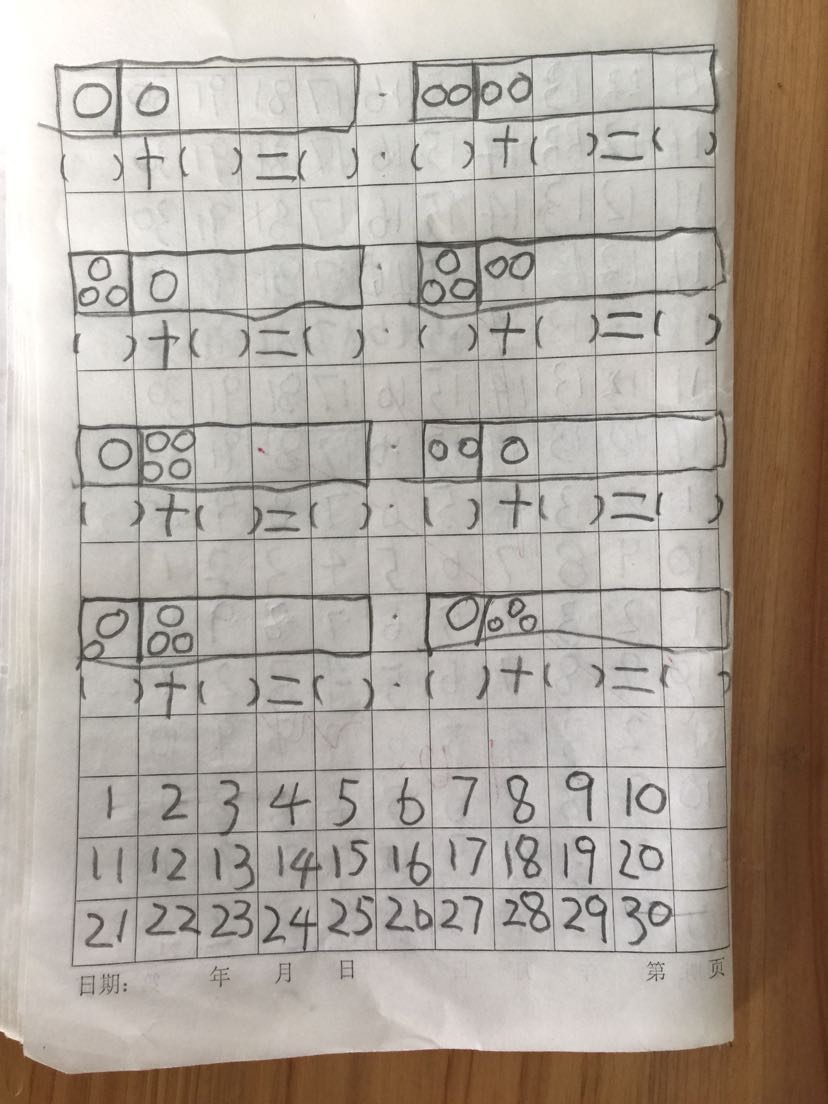 ( ) + ( ) = ( ) · ( ) + ( ) = ( )
( ) + ( ) = ( ) · ( ) + ( ) = ( )
( ) + ( ) = ( ) · ( ) + ( ) = ( )
( ) + ( ) = ( ) · ( ) + ( ) = ( )
1 2 3 4 5 6 7 8 9 10
11 12 13 14 15 16 17 18 19 20
21 22 23 24 25 26 27 28 29 30
日期: 年 月 日 第 页